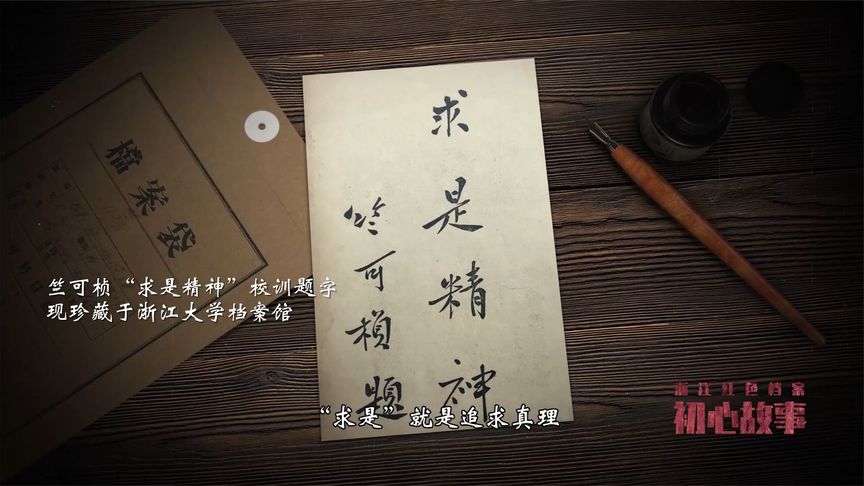 檔案袋
求是精神
竺可楨題
竺可桢“求是精神”校训题字
现珍藏于浙江大学档案馆
“求是”就是追求真理
浙江红色档案
初心故事